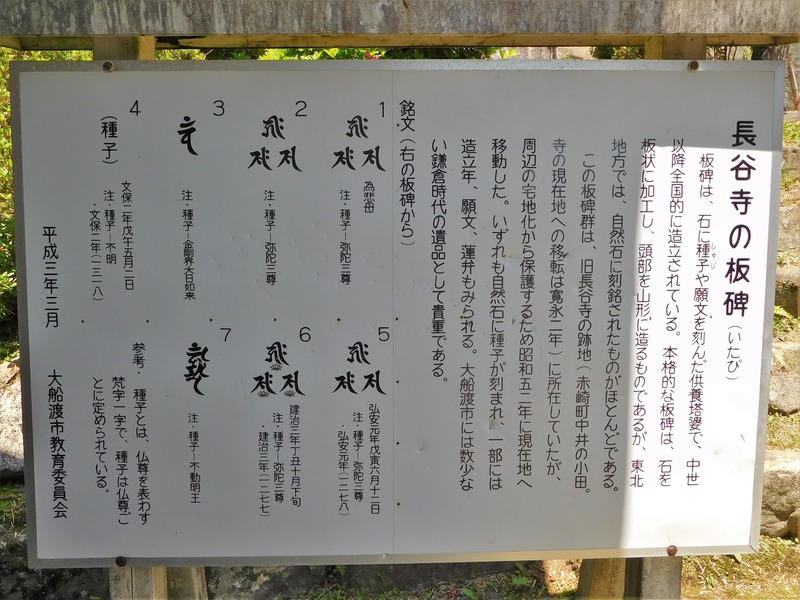 長谷寺の板碑（いたび）
板碑は、石に種子や願文を刻んだ供養塔婆で、中世
しゅじ
以降全国的に造立されている。本格的な板碑は、石を
板状に加工し、頭部を山形に造るものであるが、東北
地方では、自然石に刻銘されたものがほとんどである。
この板碑群は、旧長谷寺の跡地（赤崎町中井の小田。
寺の現在地への移転は寛永二年）に所在していたが、
周辺の宅地化から保護するため昭和五二年に現在地へ
移動した。いずれも自然石に種子が刻まれ、一部には
造立年、願文、蓮弁もみられる。大船渡市には数少な
い鎌倉時代の遺品として貴重である。
銘文（右の板碑から）
1
為悲母
注・種子ー弥陀三尊
2
注・種子ー弥陀三尊
3
注・種子ー金剛界大日如来
4
（種子）
文保二年戊午五月二日
注・種子ー不明
・文保二年（一三一八）
5
弘安元年戊寅六月十二日
注・種子ー弥陀三尊
・弘安元年（一二七八）
6
建治三年丁丑十月下旬
注・種子ー弥陀三尊
・建治三年（一二七七）
7
注・種子ー不動明王
参考・種子とは、仏尊を表わす
梵字一字で、種子は仏尊ご
とに定められている。
平成三年三月
大船渡市教育委員会